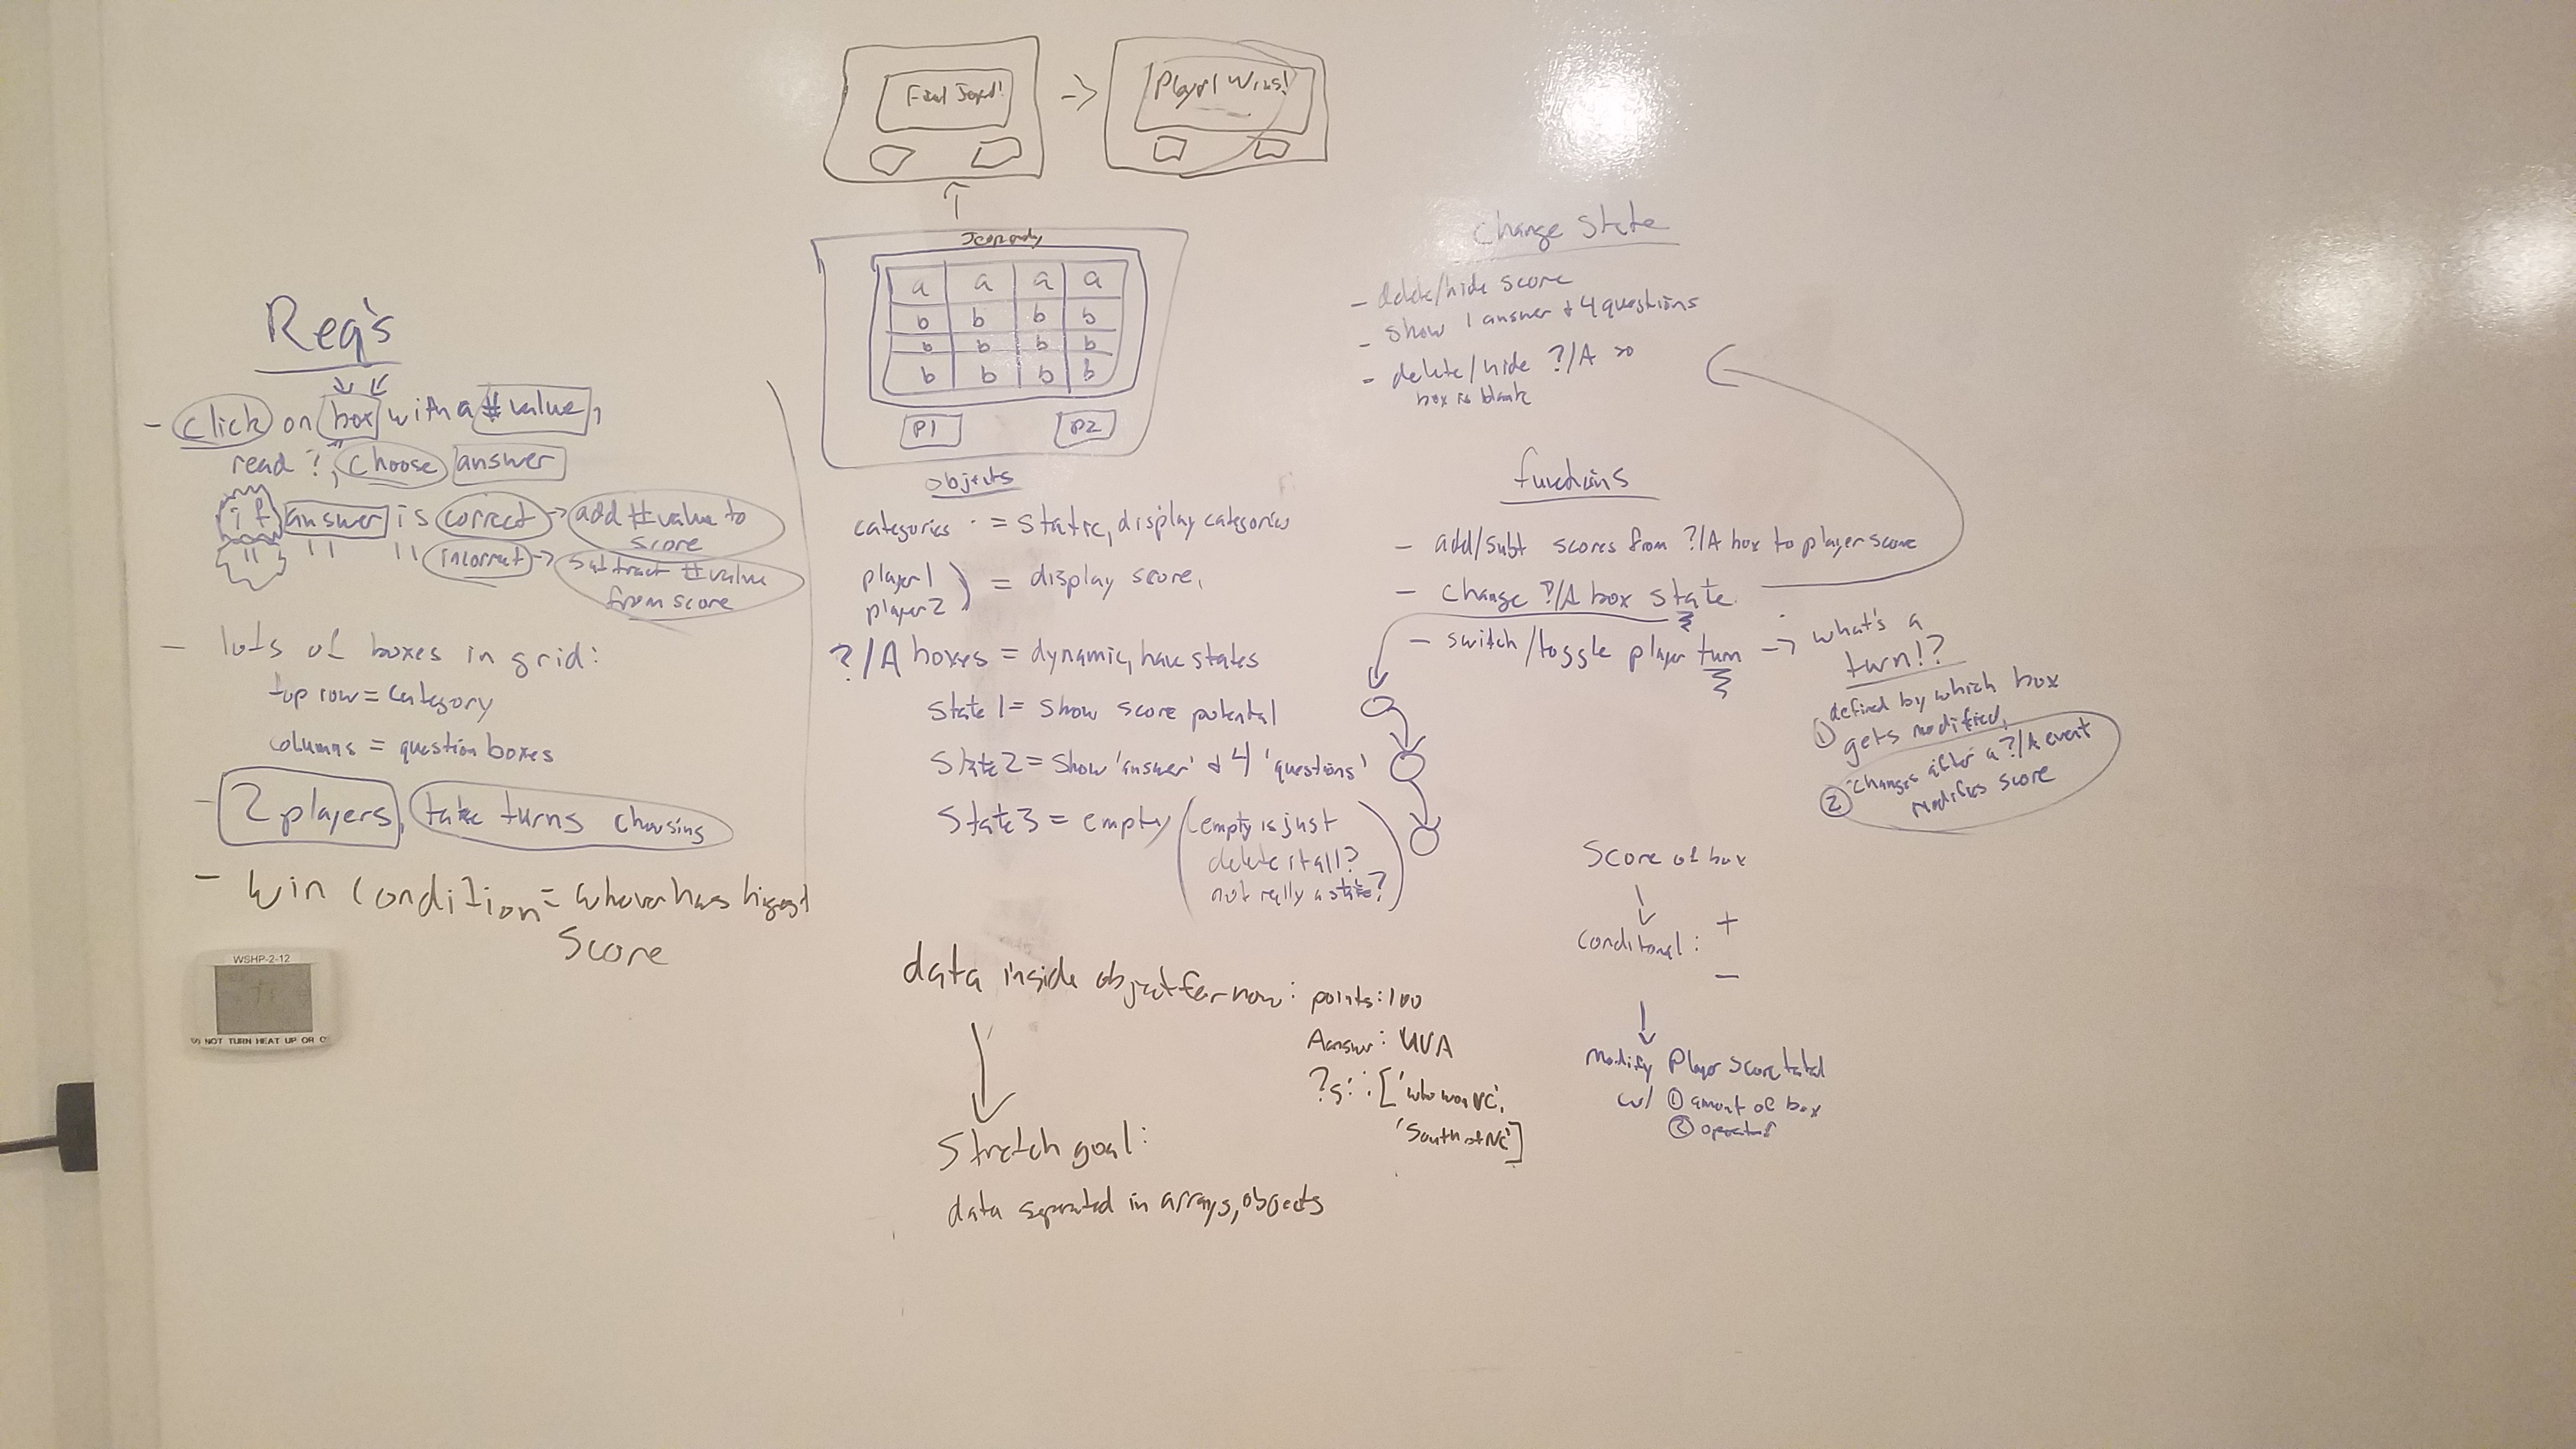 Final Jeprd!
->
Player 1 Wins!
Jeopardy
a a a a
b b b b
b b b b
b b b b
P1 P2
Req's
- click on box with a # value,
read ?, choose answer
if answer is correct -> add # value to
score
" " " incorrect -> subtract # value
from score
- lots of boxes in grid:
top row = category
columns = question boxes
- 2 players, take turns choosing
- win condition = whoever has highest
score
WSHP-2-12
NOT TURN HEAT UP OR
objects
categories = static, display categories
player1
player2 ) = display score,
?/A boxes = dynamic, have states
state 1 = show score potential
state 2 = show 'answer' + 4 'questions'
state 3 = empty (empty is just
delete it all?
not really a state?)
data inside object for now: points: 100
Aanswer: UVA
?s: : ['who won NC',
'South of NC']
stretch goal:
data separated in arrays, objects
change state
- delete/hide score
- show 1 answer + 4 questions
- delete/hide ?/A so
box is blank
functions
- add/subt scores from ?/A box to player score
- change ?/A box state
- switch/toggle player turn -> what's a
turn!?
① defined by which box
gets modified,
② changes after a ?/A event
modifies score
Score of box
Conditonal: +
-
Modify Player score total
w/ ① amount of box
② operator